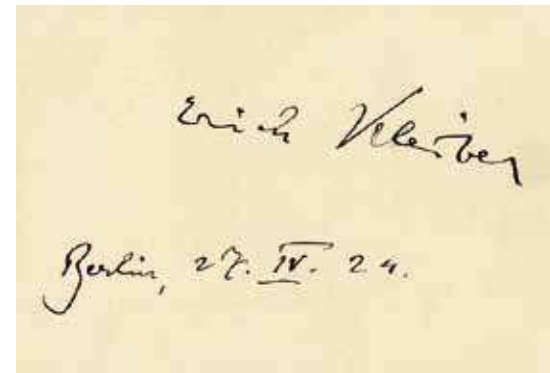 Erich Kleiber
Berlin, 27. IV. 24.